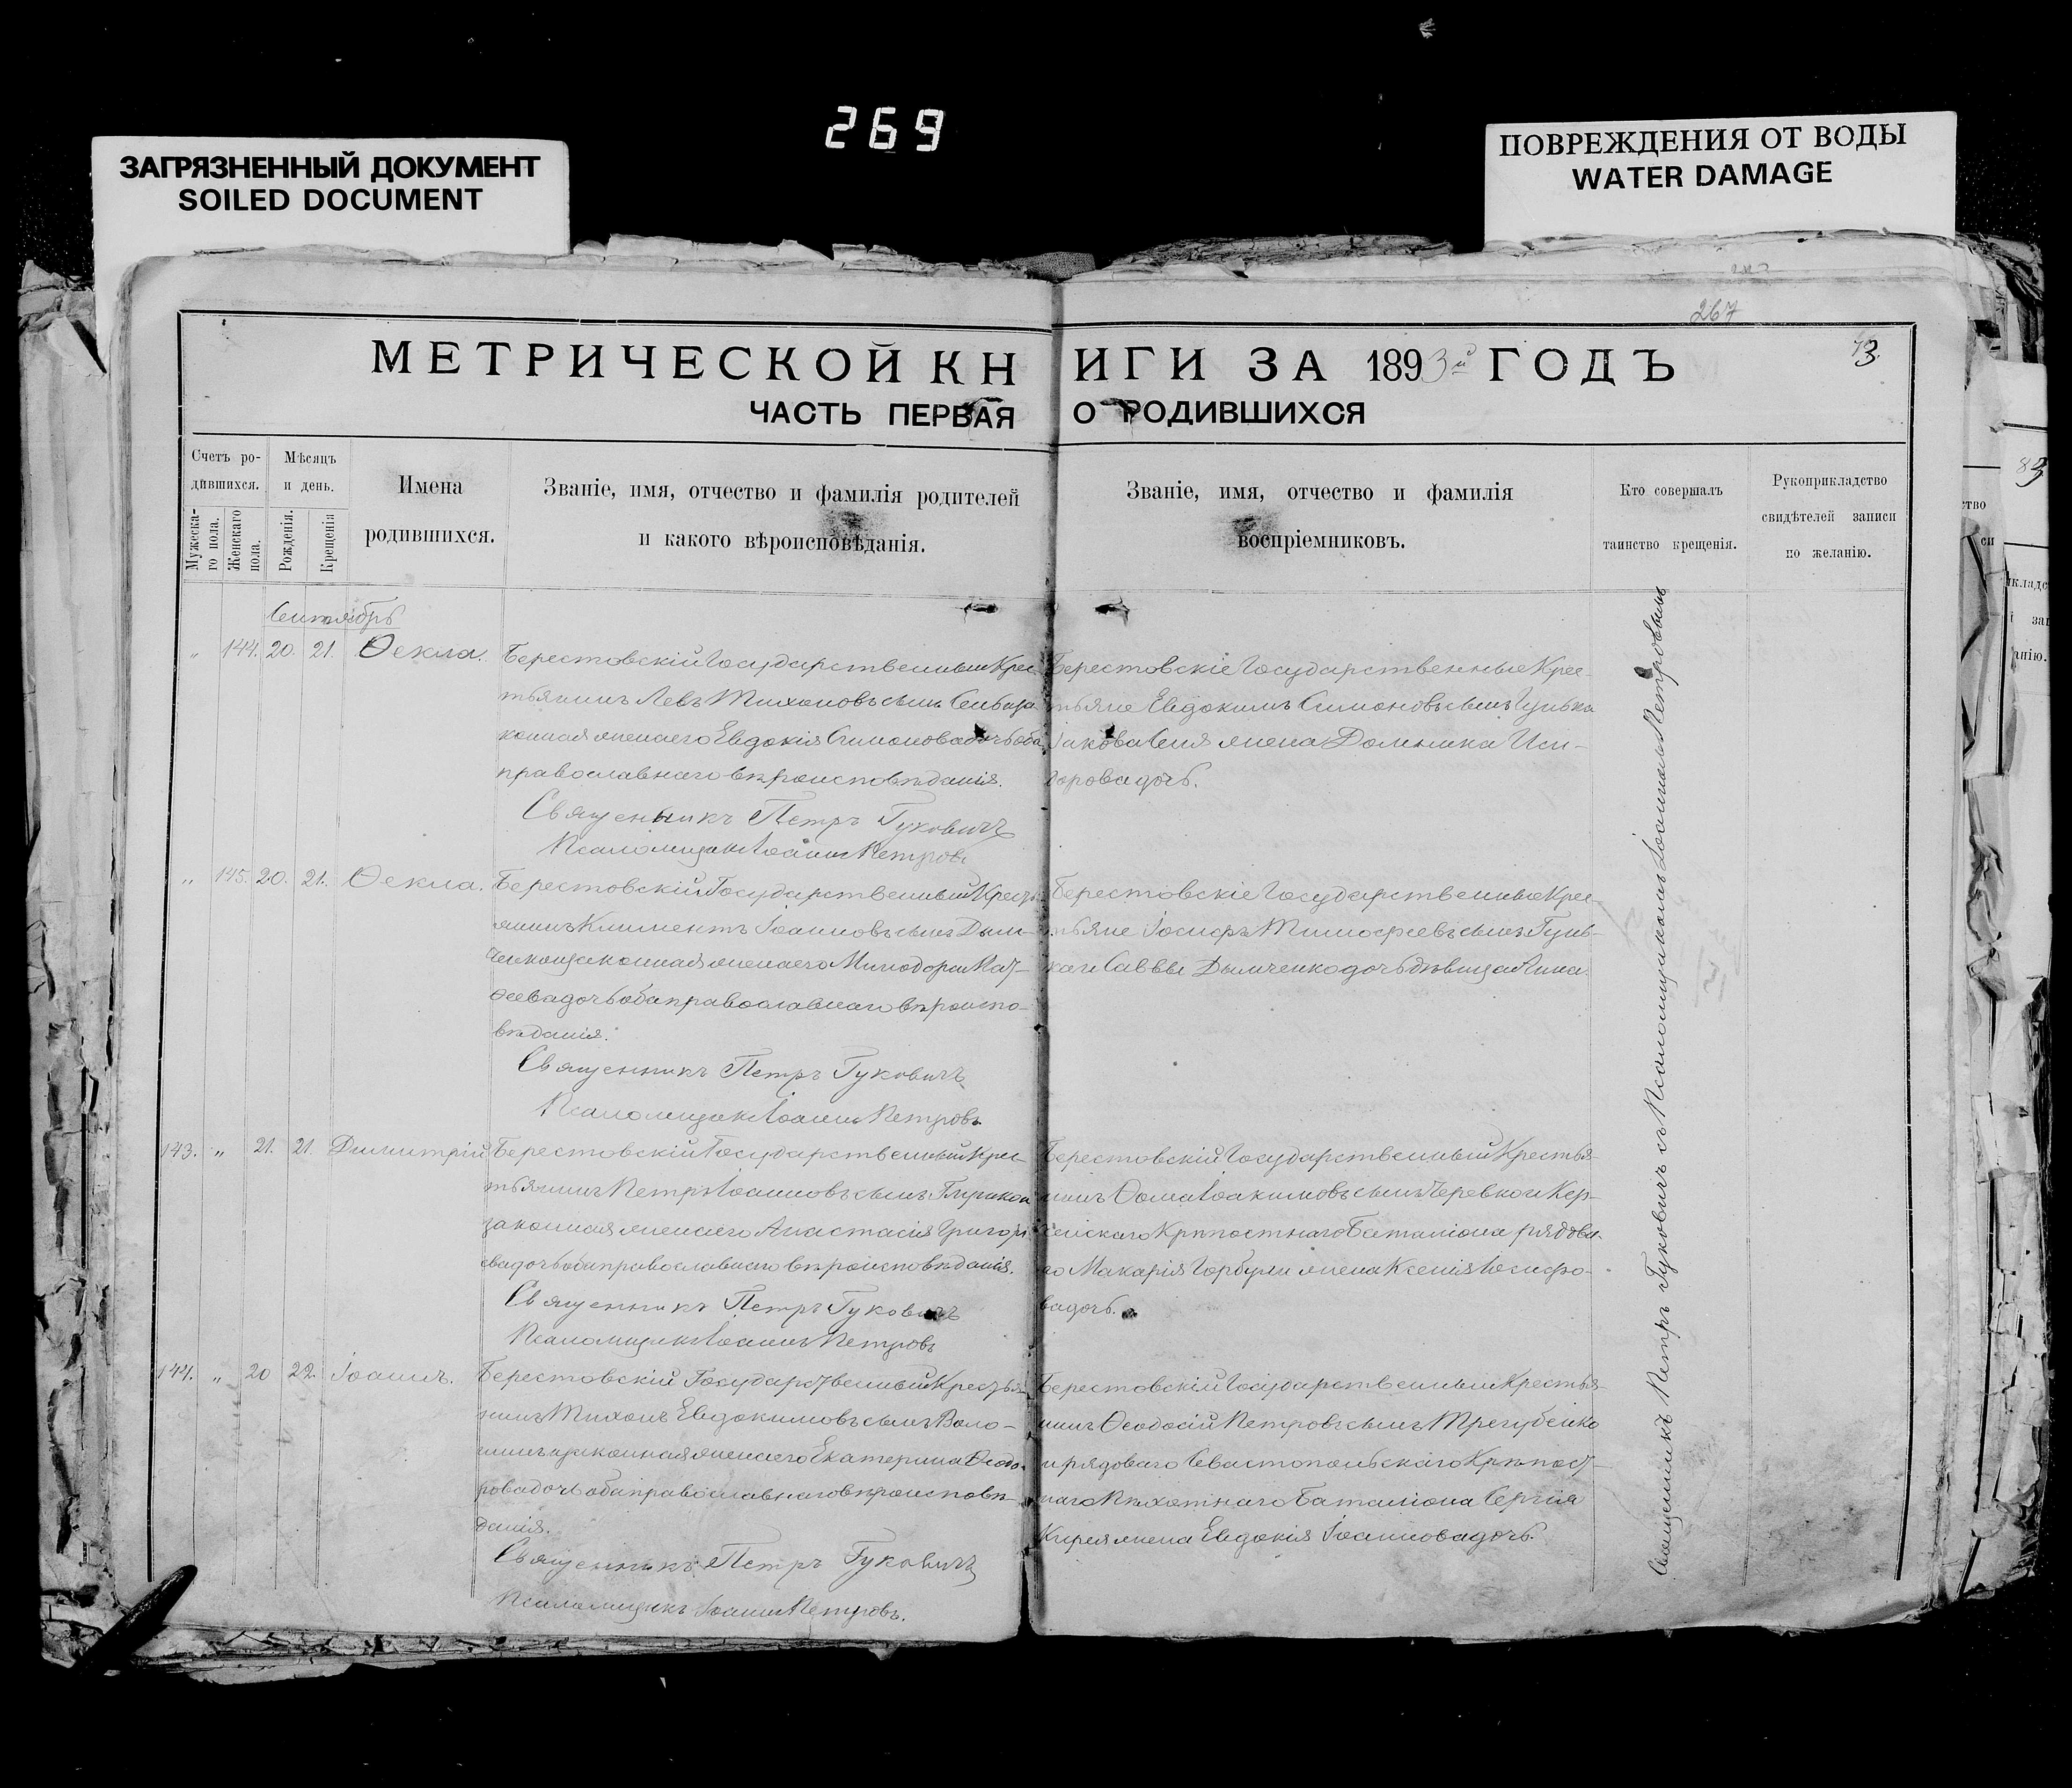 269
ЗАГРЯЗНЕННЫЙ ДОКУМЕНТ
SOILED DOCUMENT
ПОВРЕЖДЕНИЯ ОТ ВОДЫ
WATER DAMAGE
267
МЕТРИЧЕСКОЙ КНИГИ ЗА 1893й ГОДЪ
ЧАСТЬ ПЕРВАЯ О РОДИВШИХСЯ
Счетъ родившихся.
Мужескаго пола.
Женскаго пола.
Мѣсяцъ и день.
Рожденія.
Крещенія
Имена
родившихся.
Званіе, имя, отчество и фамилія родителей
и какого вѣроисповѣданія.
Званіе, имя, отчество и фамилія
воспріемниковъ.
Кто совершалъ
таинство крещенія.
Рукоприкладство
свидѣтелей записи
по желанію.
Сентябрь
„ 144. 20. 21. Ѳекла.
Берестовскій Государственный Крес
тьянинъ Левъ Тихоновъ сынъ
конная жена его Евдокія Симонова дочь оба
православнаго вѣроисповѣданія.
Священникъ Петръ Гуковичъ
Псаломщикъ Іоаннъ Петровъ
Берестовскіе Государственные Крес-
тьяне Евдокимъ Симоновъ сынъ
Іакова жена Домника
дочь.
„ 145. 20. 21. Ѳекла.
Берестовскій Государственный Крестья
нинъ Климентъ Іоанновъ сынъ Дым-
ченко законная жена его Минодора Мат-
ѳеева дочь оба православнаго вѣроиспо-
вѣданія.
Священникъ Петръ Гуковичъ
Псаломщикъ Іоаннъ Петровъ
Берестовскіе Государственные Крес-
тьяне Іосифъ Тимофеевъ сынъ Гунь-
ка и Саввы Дымченко дочь дѣвица
143. „ 21. 21. Димитрій
Берестовскій Государственный Крес-
тьянинъ Петръ Іоанновъ сынъ
законная жена его Анастасія Григорь
ева дочь оба православнаго вѣроисповѣданія.
Священникъ Петръ Гуковичъ
Псаломщикъ Іоаннъ Петровъ
Берестовскій Государственный Крестья-
нинъ Ѳома Іоакимовъ сынъ Черевко и Кер-
ченскаго Крѣпостнаго Баталіона рядова-
го Макарія Горбули жена Ксенія Іосифо-
ва дочь.
144. „ 20 22. Іоаннъ.
Берестовскій Государственный Крестья
нинъ Тихонъ Евдокимовъ сынъ Воло-
законная жена его Екатерина Ѳеодо-
рова дочь оба православнаго вѣроисповѣ-
данія.
Священникъ Петръ Гуковичъ
Псаломщикъ Іоаннъ Петровъ.
Берестовскій Государственный Крестья-
нинъ Ѳеодосій Петровъ сынъ Трегубенко
и рядоваго Севастопольскаго Крѣпост-
наго Пѣхотнаго Баталіона Сергія
Кирея жена Евдокія Іоаннова дочь.
Священникъ Петръ Гуковичъ съ Псаломщикомъ Іоанномъ Петровымъ